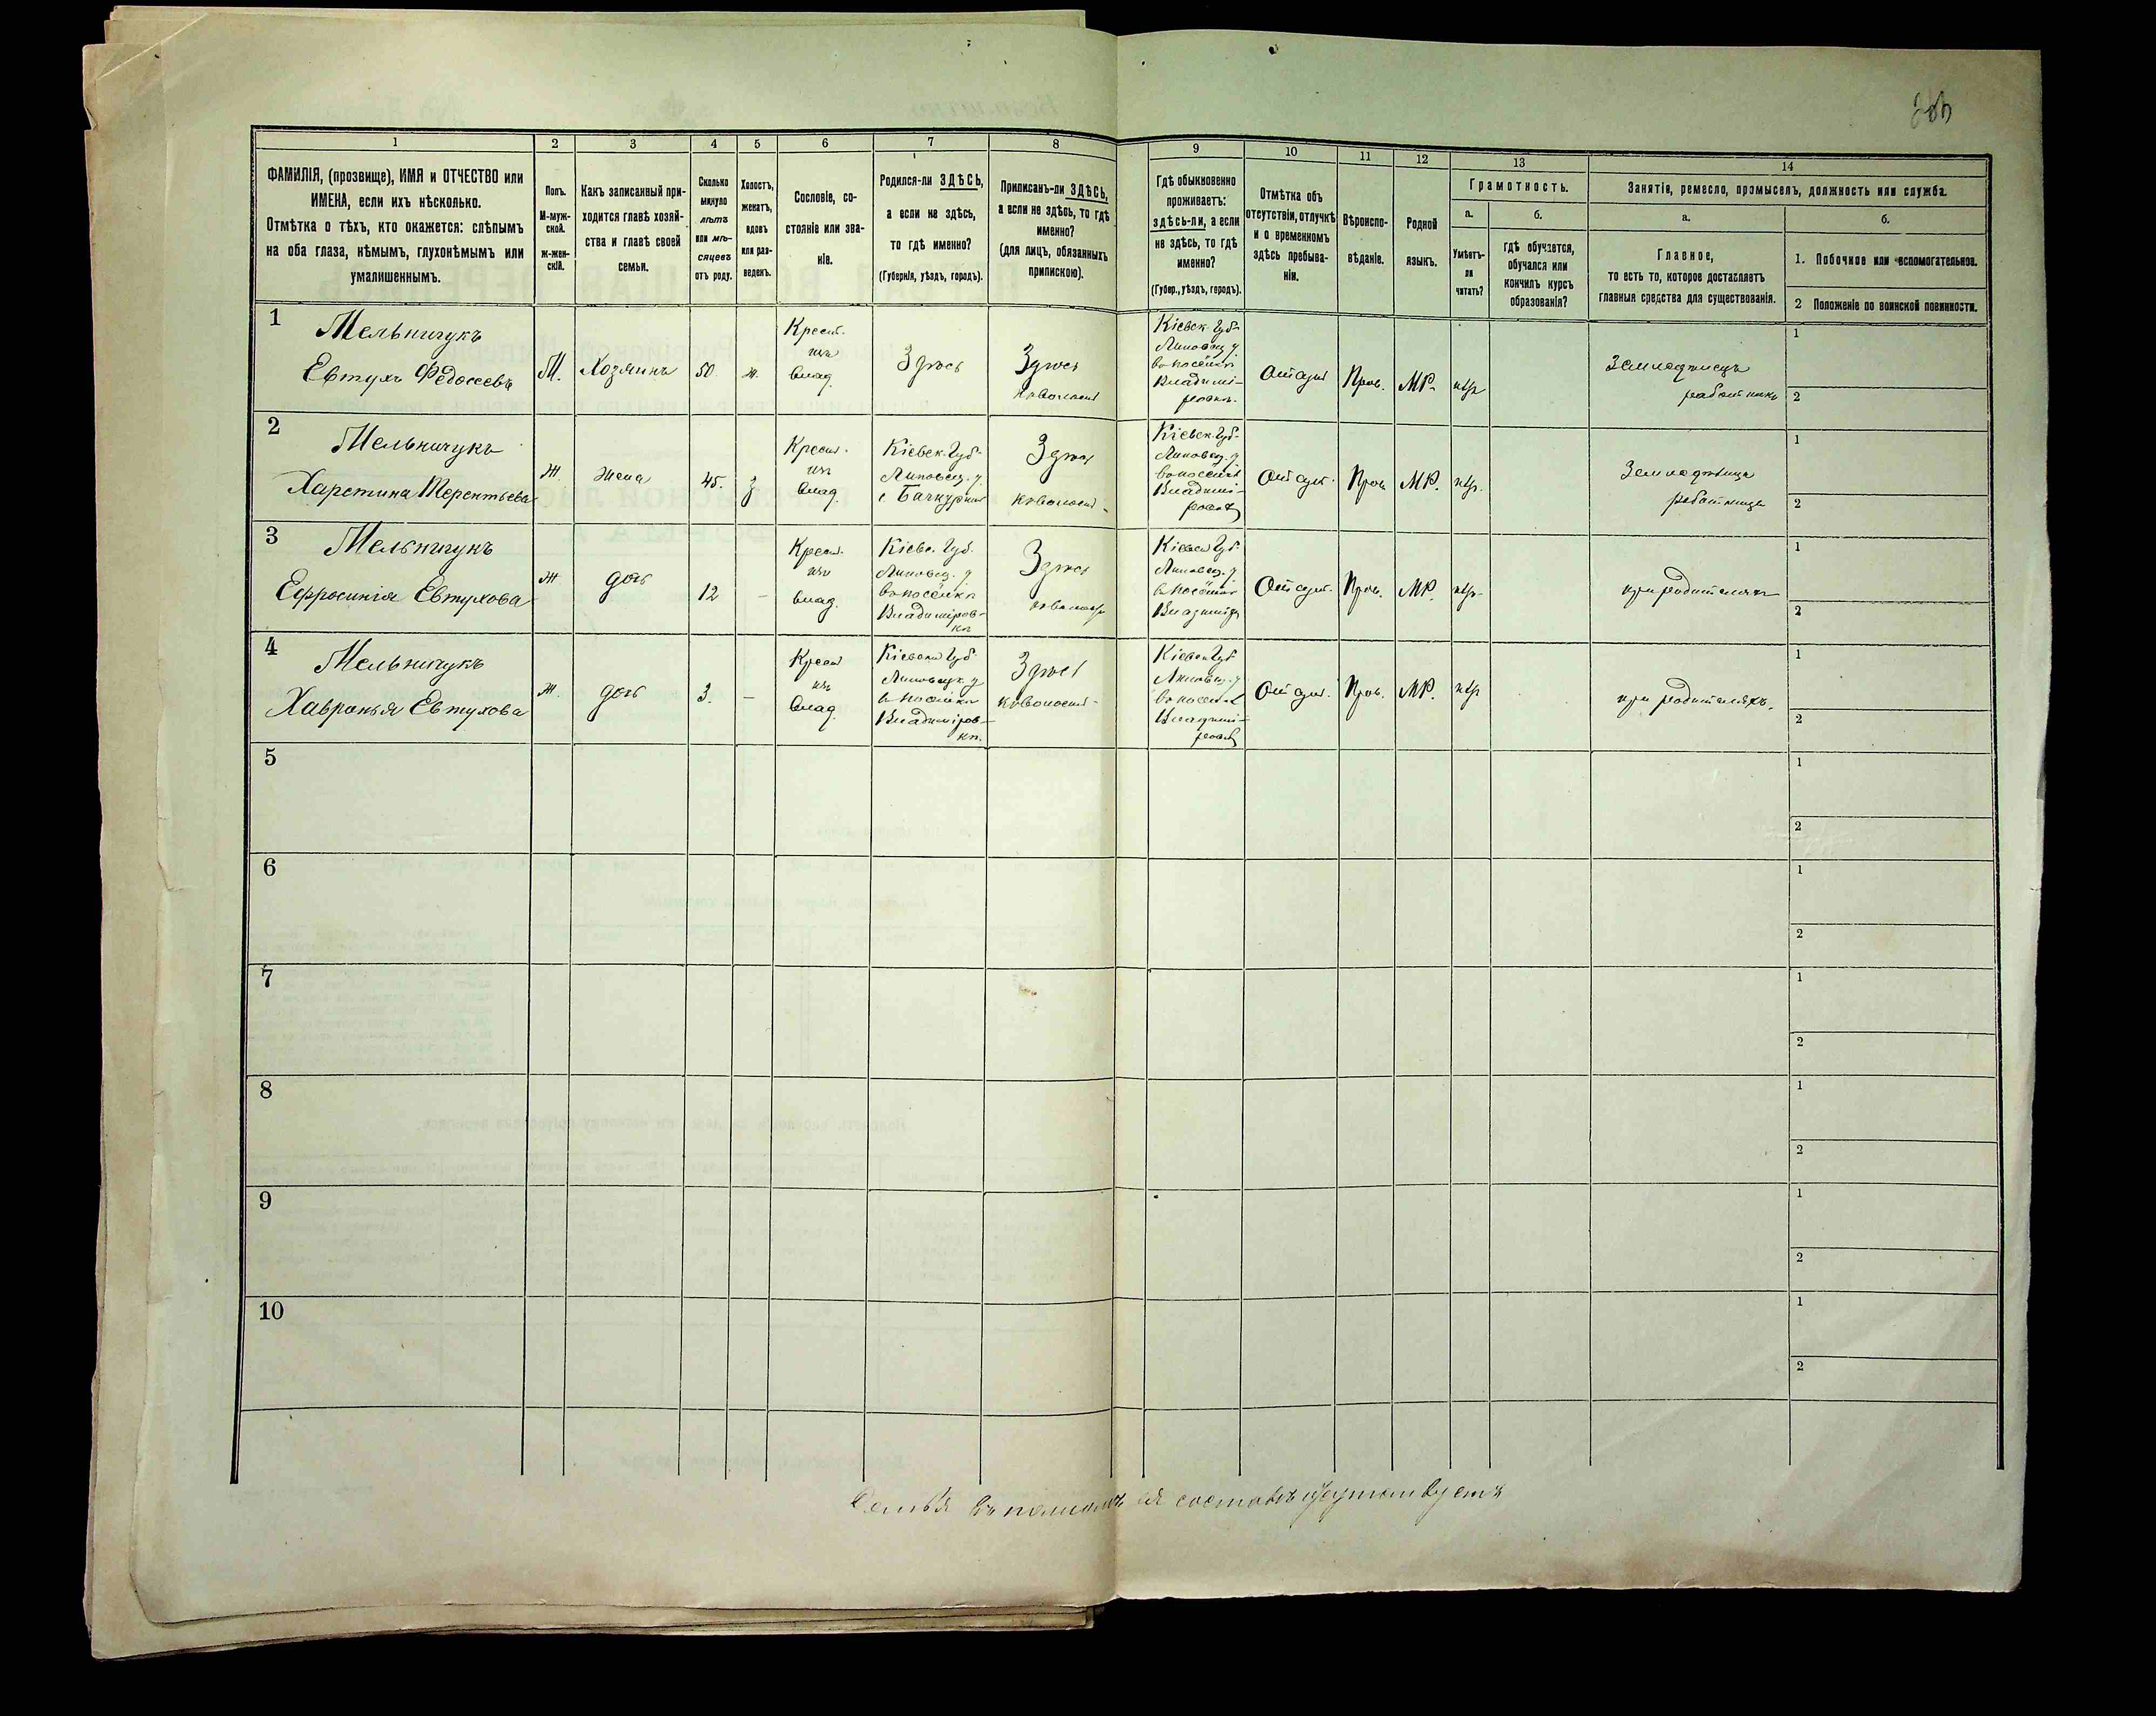 1 2 3 4 5 6 7 8 9 10 11 12 13 14
ФАМИЛІЯ, (прозвище), ИМЯ и ОТЧЕСТВО или
ИМЕНА, если ихъ нѣсколько.
Отмѣтка о тѣхъ, кто окажется: слѣпымъ
на оба глаза, нѣмымъ, глухонѣмымъ или
умалишеннымъ.
Полъ.
М-муж-
ской.
ж-жен-
скій.
Какъ записанный при-
ходится главѣ хозяй-
ства и главѣ своей
семьи.
Сколько
минуло
лѣтъ
или мѣ-
сяцевъ
отъ роду.
Холостъ,
женатъ,
вдовъ
или раз-
веденъ.
Сословіе, со-
стояніе или зва-
ніе.
Родился-ли ЗДѢСЬ,
а если не здѣсь,
то гдѣ именно?
(Губернія, уѣздъ, городъ).
Приписанъ-ли ЗДѢСЬ,
а если не здѣсь, то гдѣ
именно?
(для лицъ, обязанныхъ
припискою).
Гдѣ обыкновенно
проживаетъ:
здѣсь-ли, а если
не здѣсь, то гдѣ
именно?
(Губер., уѣздъ, городъ).
Отмѣтка объ
отсутствіи, отлучкѣ
и о временномъ
здѣсь пребыва-
ніи.
Вѣроиспо-
вѣданіе.
Родной
языкъ.
Грамотность.
а.
Умѣетъ-
ли
читать?
б.
гдѣ обучается,
обучался или
кончилъ курсъ
образованія?
Занятія, ремесло, промыселъ, должность или служба.
а.
Главное,
то есть то, которое доставляетъ
главныя средства для существованія.
б.
1. Побочное или вспомогательное.
2 Положеніе по воинской повинности.
1
Мельничукъ
Евтухъ Федосеевъ
М.
Хозяинъ
50.
ж.
Крест.
изъ
влад.
Здѣсь
Здѣсь
Кіевск. Губ.
Липовец. у.
Владимі-
ровкѣ
Отсут.
Прав.
МР.
нѣтъ
Земледѣлецъ
работникъ
1
2
2
Мельничукъ
Харетина Терентьева
Ж
жена
45.
з
Крест.
изъ
влад.
Кіевск. Губ.
Липовец. у.
с.
Здѣсь
Кіевск. Губ.
Липовец. у
Владимі-
ровкѣ
Отсут.
Прав.
МР.
нѣтъ.
Земледѣлица
работница
1
2
3
Мельничукъ
Ефросинія Евтухова
Ж
дочь
12
-
Крест.
изъ
влад.
Кіевс. Губ.
Липовец. у
въ посёлкѣ
Владиміров-
кѣ
Здѣсь
Кіевск Губ.
Липовец. у
Отсут.
Прав.
МР.
нѣтъ
при родителяхъ
1
2
4
Мельничукъ
Хавронья Евтухова
Ж.
дочь
3.
-
Крест
изъ
влад.
Кіевск Губ
Липовецк. у
въ посёлкѣ
Владиміров-
кѣ.
Здѣсь
Кіевск Губ
Липовец. у
Отсут.
Прав.
МР.
нѣтъ
при родителяхъ.
1
2
5
1
2
6
1
2
7
1
2
8
1
2
9
1
2
10
1
2
Семья въ полномъ ея составѣ отсутствуетъ